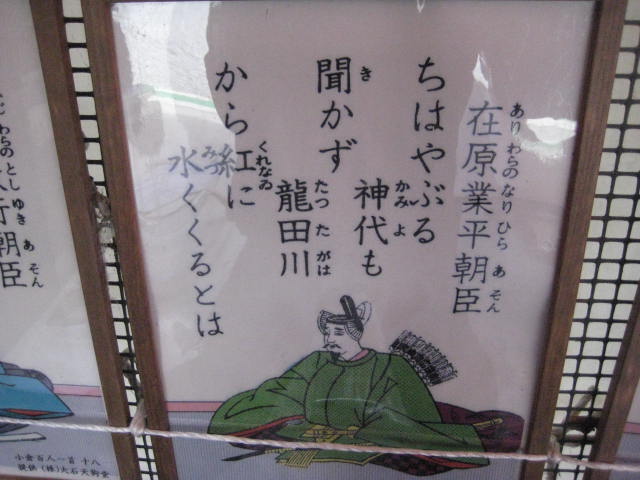 在原業平朝臣
ありわらのなりひらあそん
ちはやぶる
神代も
かみよ
聞かず
き
龍田川
たつたがは
から紅に
くれなゐ
水くくるとは
み
行朝臣
わらのとしゆきあそん
小倉百人一首 十八
提供 (株)大石天狗堂